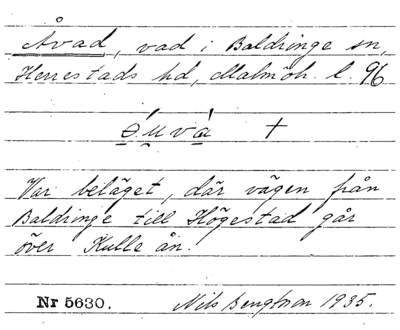 Åvad, vad i Baldringe sn,
Herrestads hd, Malmöh. l. 96
+
Var beläget, där vägen från
Baldringe till Högestad går
över Kulle ån.
Nr 5630. Nils Bengtsson 1935.